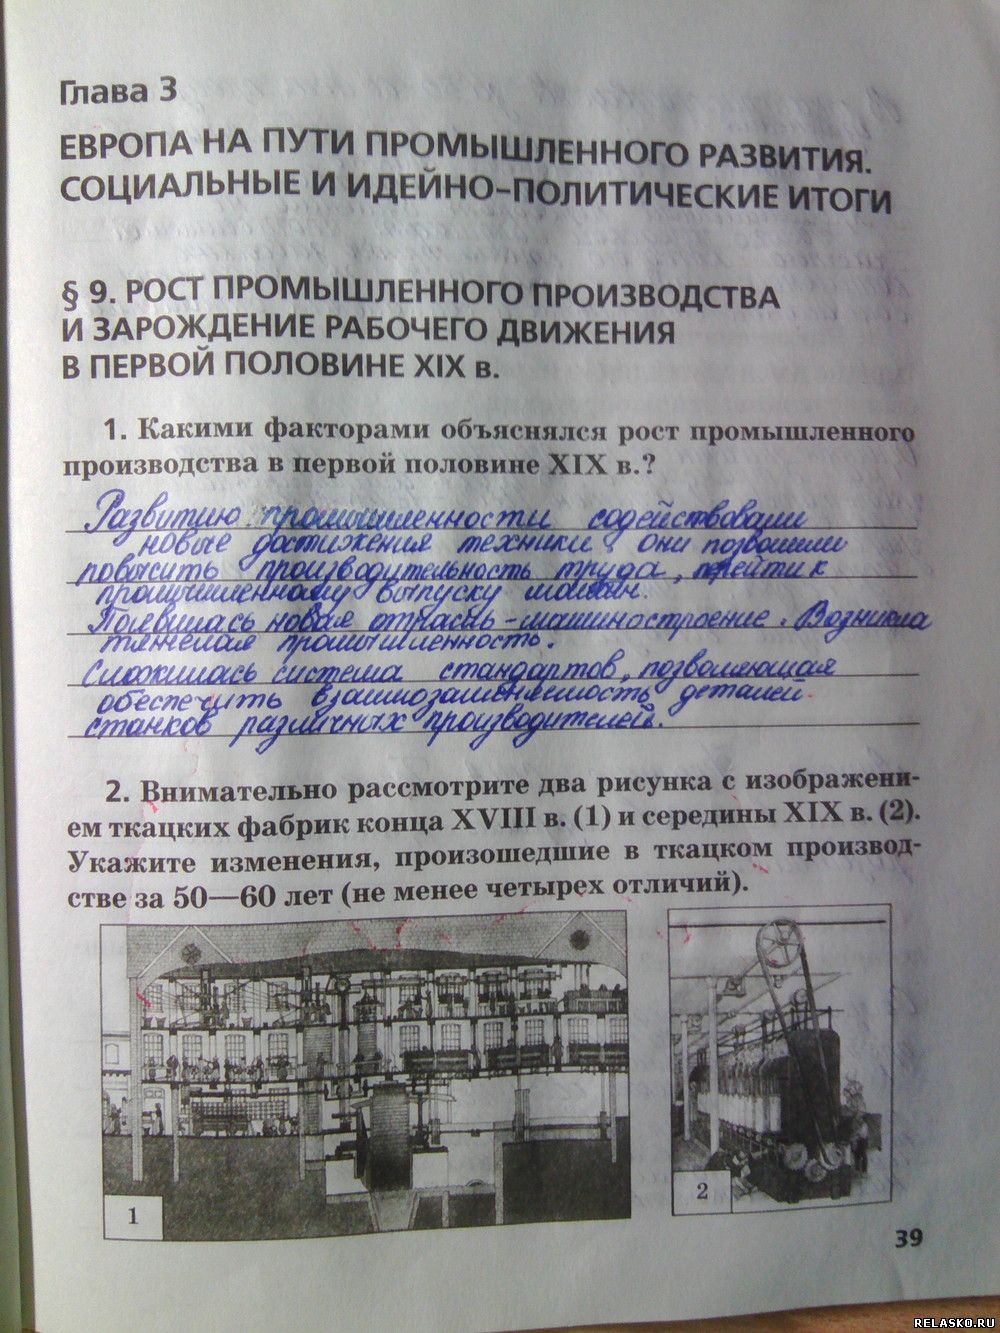 Глава 3
ЕВРОПА НА ПУТИ ПРОМЫШЛЕННОГО РАЗВИТИЯ.
СОЦИАЛЬНЫЕ И ИДЕЙНО-ПОЛИТИЧЕСКИЕ ИТОГИ
§ 9. РОСТ ПРОМЫШЛЕННОГО ПРОИЗВОДСТВА
И ЗАРОЖДЕНИЕ РАБОЧЕГО ДВИЖЕНИЯ
В ПЕРВОЙ ПОЛОВИНЕ XIX в.
1. Какими факторами объяснялся рост промышленного
производства в первой половине XIX в.?
Развитию промышленности содействовали
новые достижения техники, они позволили
повысить производительность труда, перейти к
промышленному выпуску машин.
Появилась новая отрасль - машиностроение. Возникла
тяжелая промышленность.
Сложилась система стандартов, позволяющая
обеспечить взаимозаменяемость деталей
станков различных производителей.
2. Внимательно рассмотрите два рисунка с изображени-
ем ткацких фабрик конца XVIII в. (1) и середины XIX в. (2).
Укажите изменения, произошедшие в ткацком производ-
стве за 50—60 лет (не менее четырех отличий).
1
2
39
RELASKO.RU